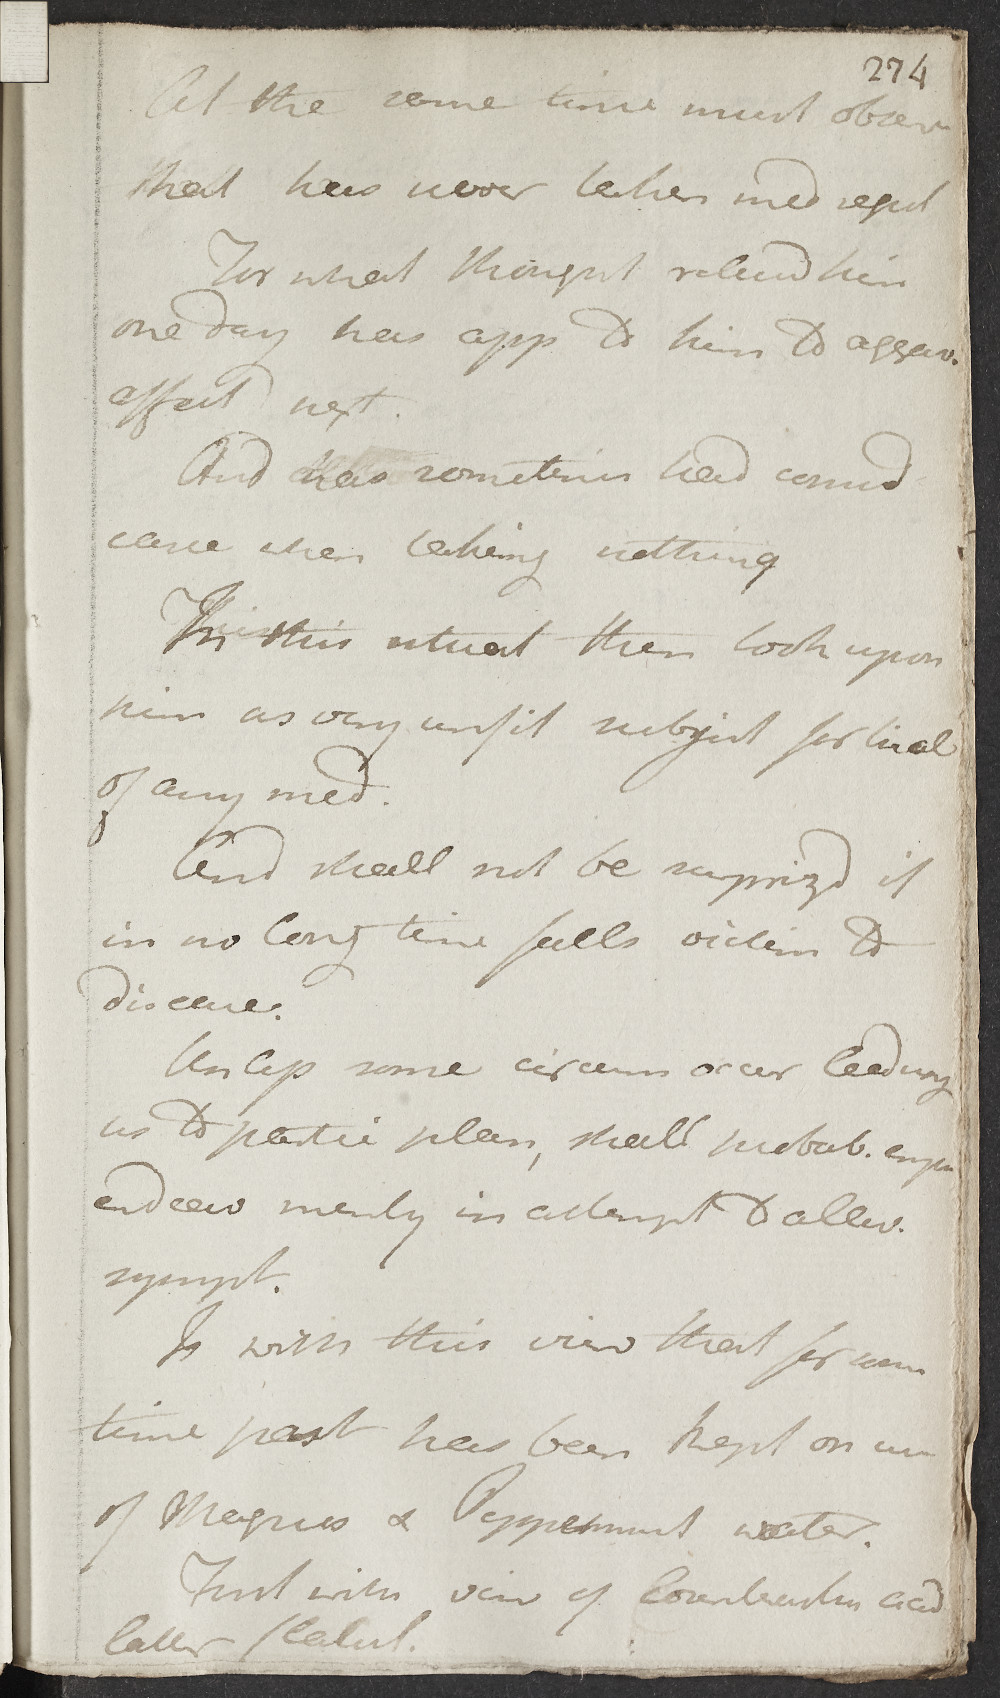 274
At the same time must observ
that has never taken med regul
For what thought reliev'd him
one day has app to him to aggrav.
affect next.
And has sometimes had conside
case when taking nothing
In this situat then look upon
him as very unfit subject for trial
of any med.
And shall not be surprizd if
in no long time falls victim to
disease.
Unless some circum occur leading
us to partic plan, shall probab.
endeav merely in attempt to allev.
sympt.
Is with this view that for some
time past has been kept on use
of Magnes & Peppermint water.
First with view of counteracting acid
latter flatul.